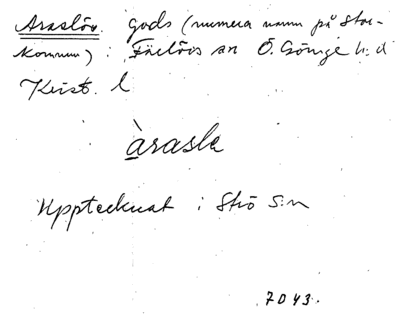 Araslöv. gods (numera namn på stor-
kommun) i Färlövs sn Ö. Göinge h:d
Krist. l
àrasle
Upptecknat i Strö s:n
7043.